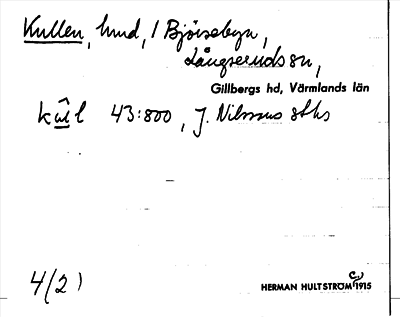 Kullen, hmd, / Björseby n,
Långseruds sn,
Gillbergs hd, Värmlands län
kul 43:800, J. Nilssons
4/2)
HERMAN HULTSTRÖM 1915